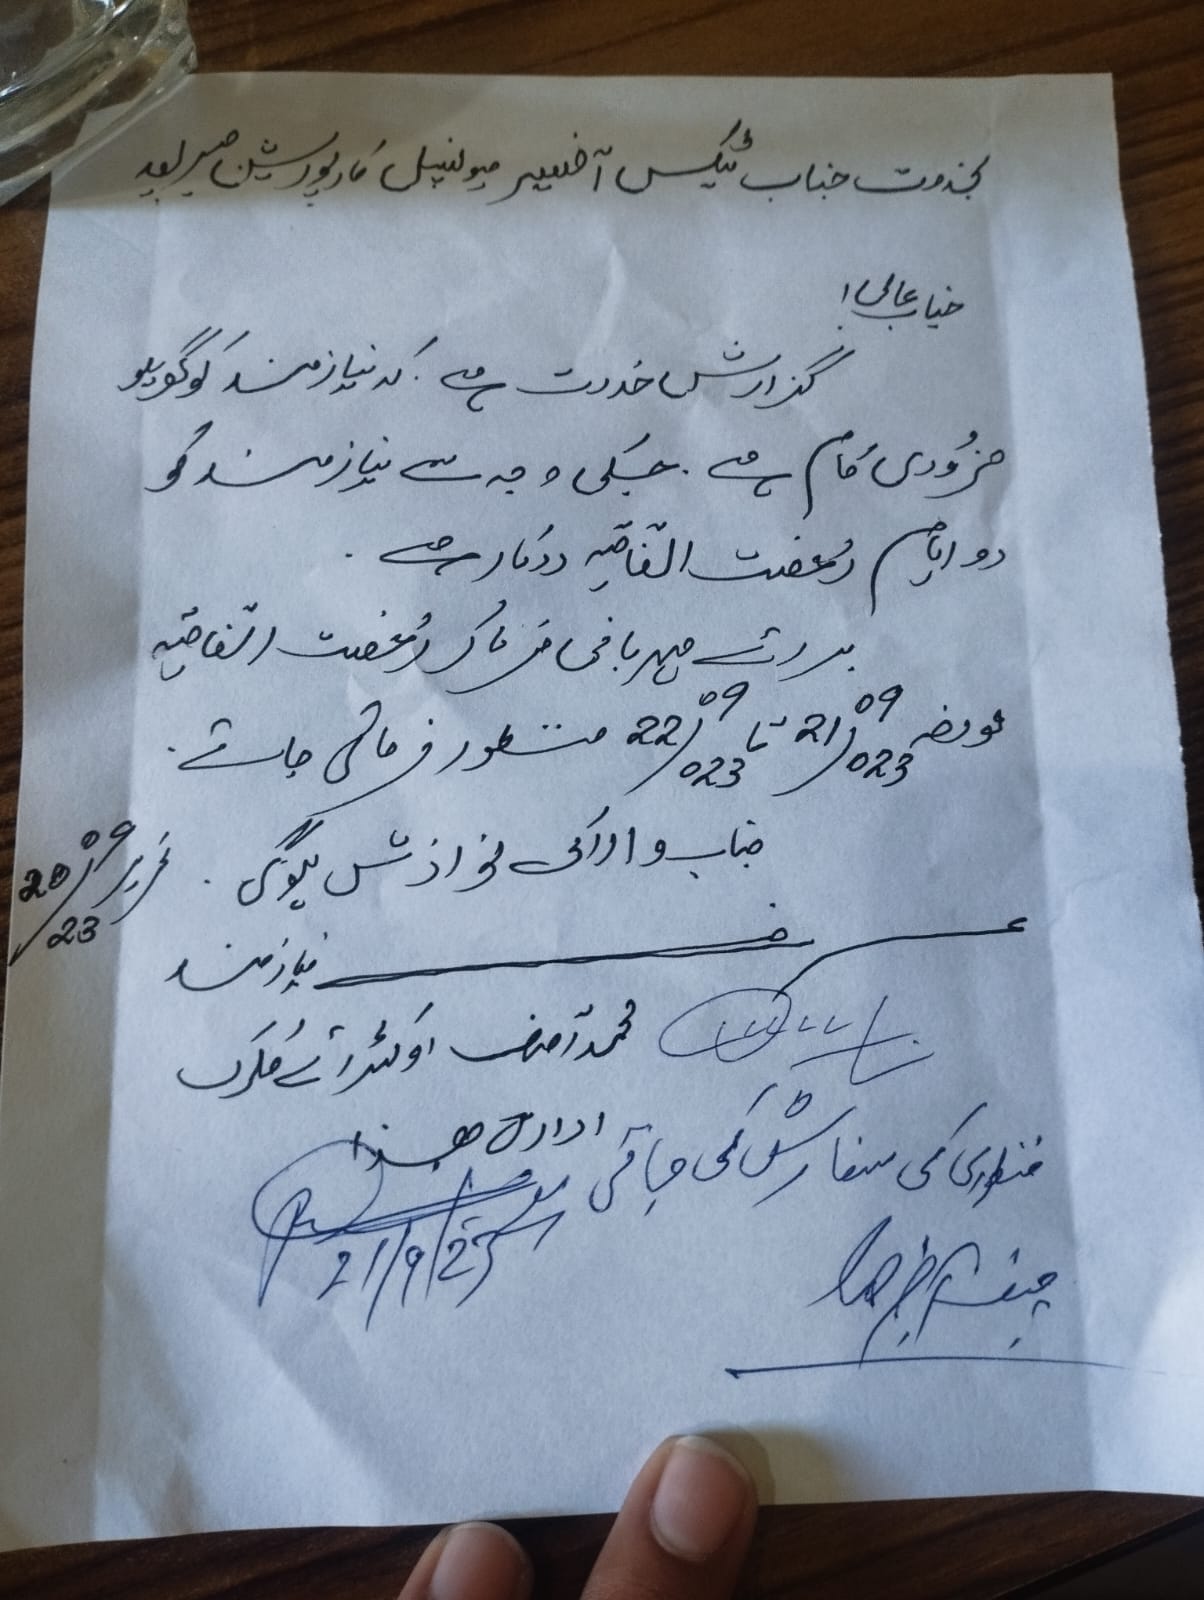 بخدمت جناب ٹیکس آفیسر میونسپل کارپوریشن میرپور
جناب عالی!
گزارش خدمت ہے۔ کہ نیازمند کو گھریلو
ضروری کام ہے۔ جسکی وجہ سے نیازمند کو
دو ایام رُخصت اتفاقیہ درکار ہے۔
برائے مہربانی فرما کر رُخصت اتفاقیہ
مورخہ 21/09/023 تا 22/09/023 منظور فرمائی جائے۔
جناب والا کی نوازش ہوگی۔ تحریر 20/09/23
عرضے نیازمند
محمد آصف آکٹرائے کلرک
ادارہ ھذا
منظوری کی سفارش کی جاتی ہے
21/9/23